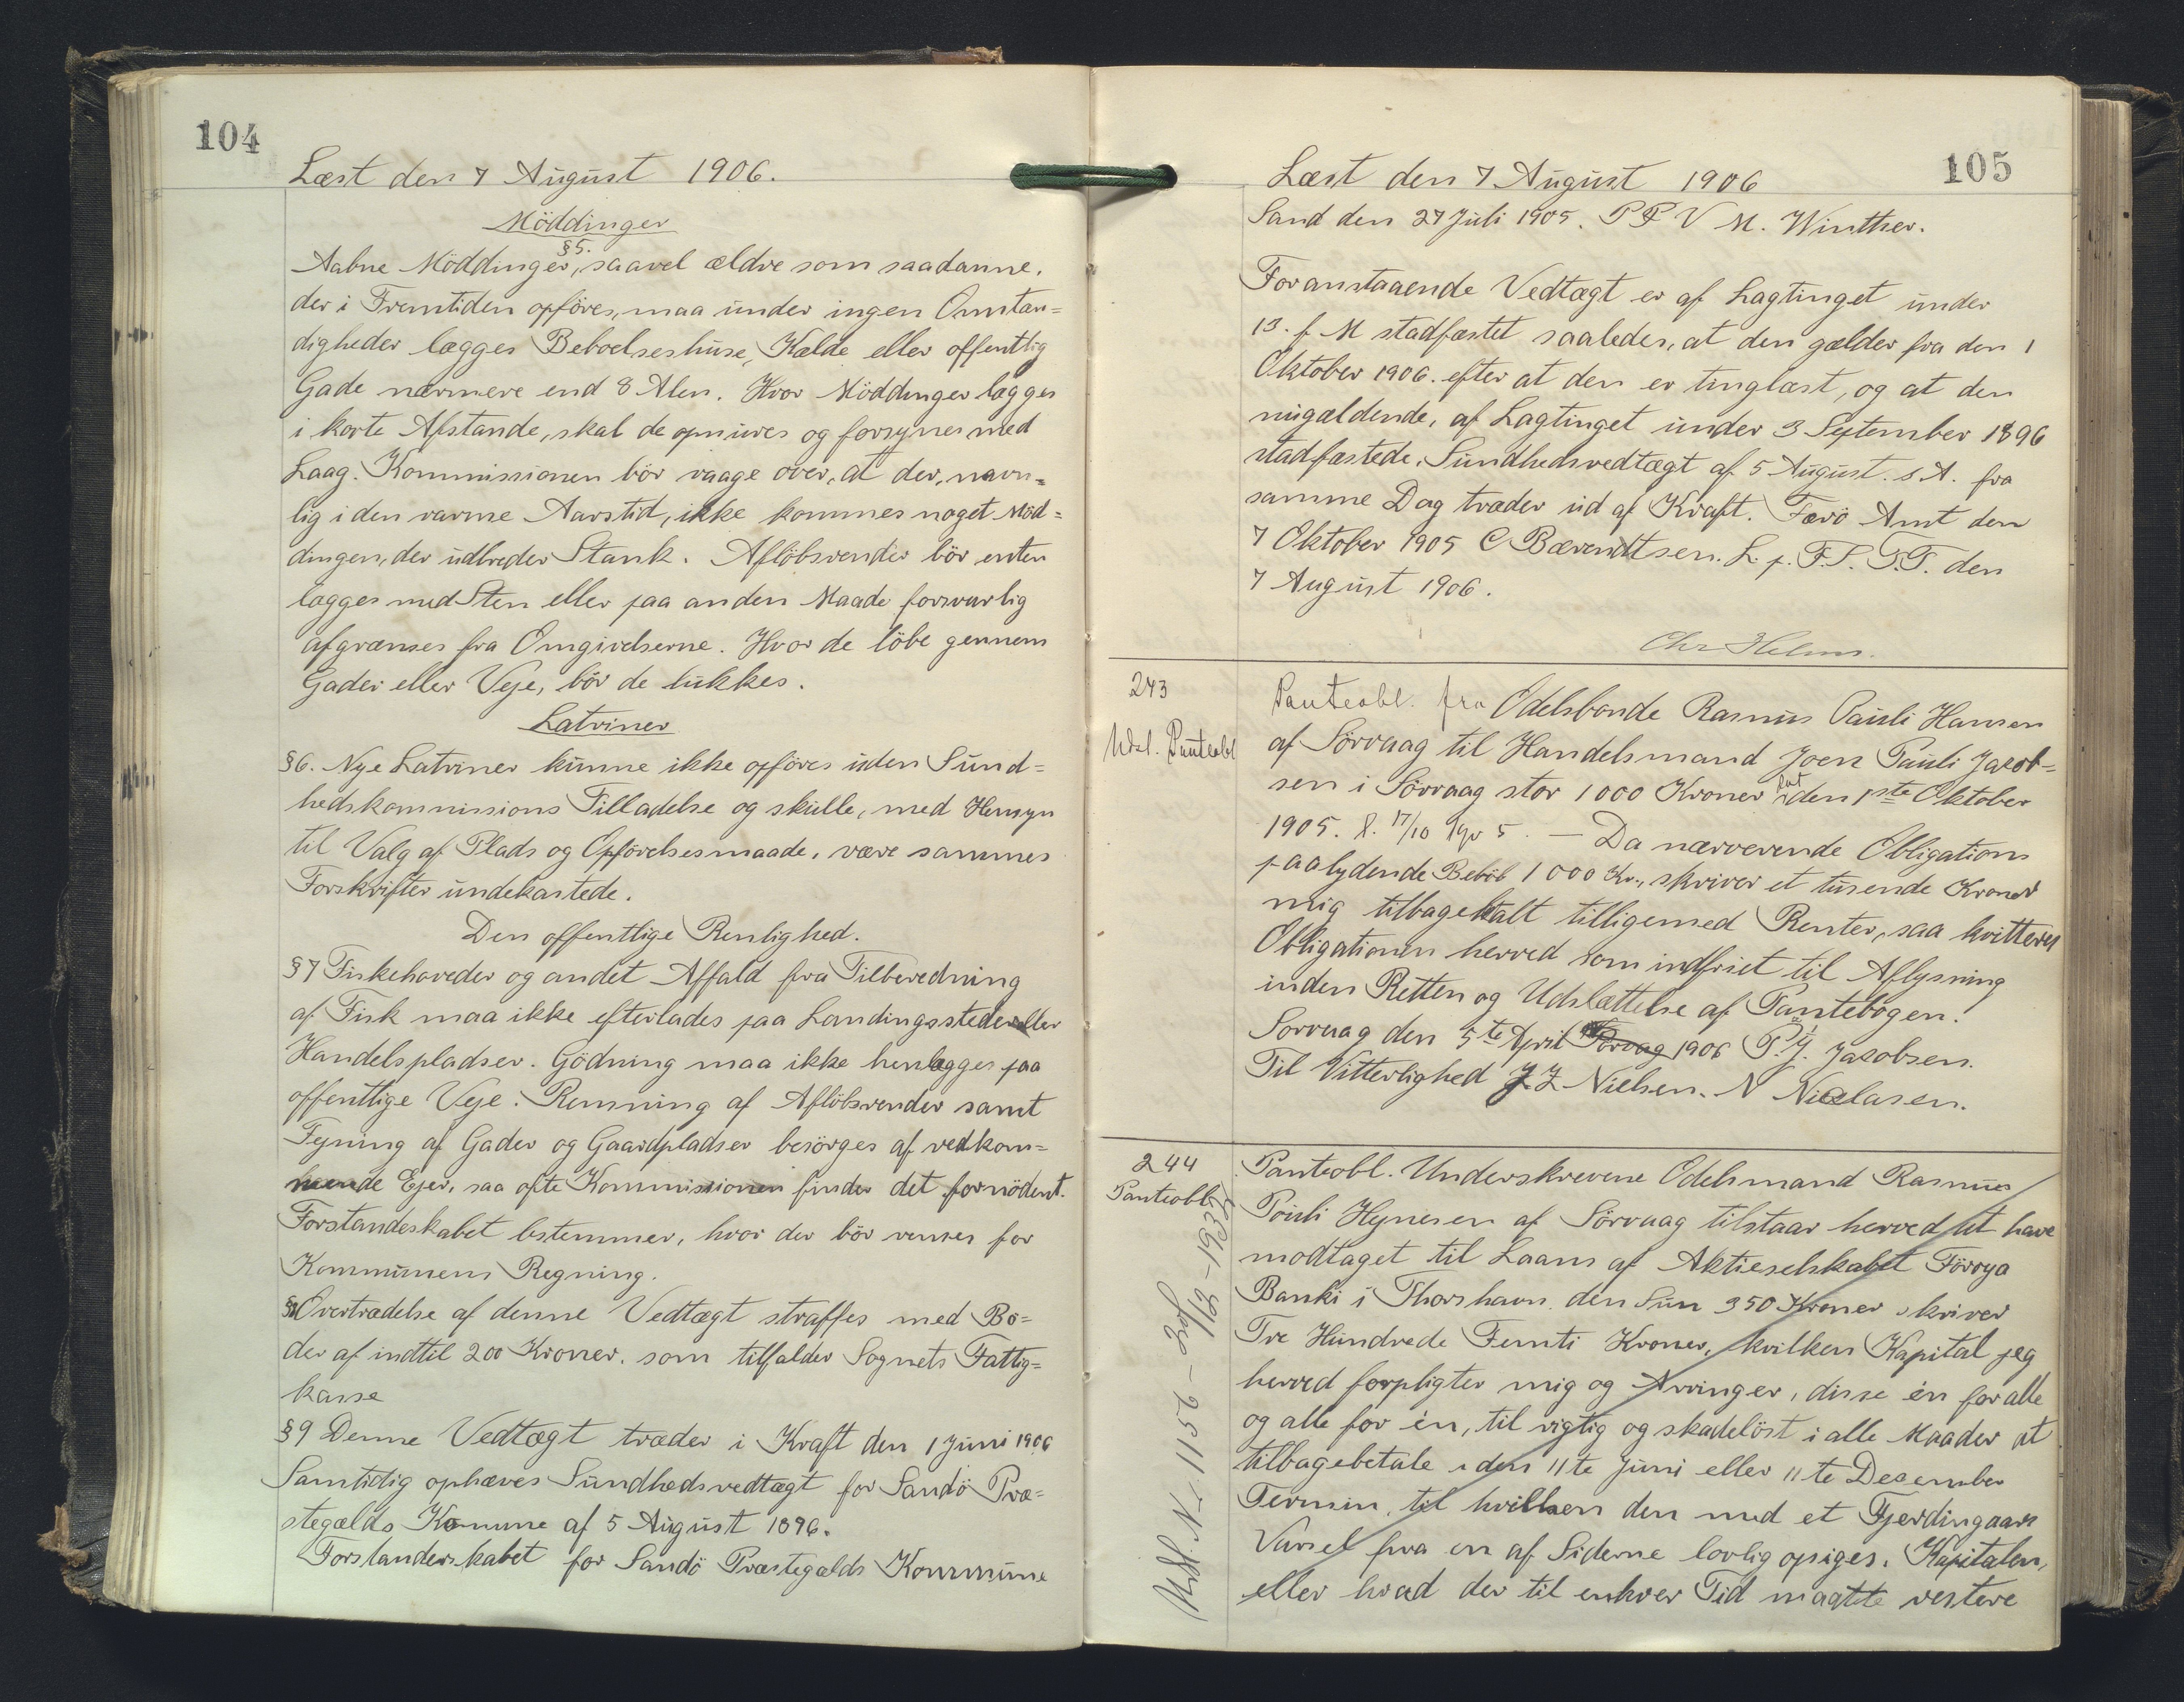 104
Læst den 7 August 1906.
Möddinger
§5.
Aabne Möddinger, saavel ældre som saadanne,
der i Fremtiden opföres, maa under ingen Omstan=
digheder lægges Beboelseshuse, Kælde eller offentlig
Gade nærmere end 8 Alen. Hvor Möddinger lægges
i korte Afstande, skal de opmures og forsynes med
Laag. Kommissionen bör vaage over, at der, navn=
lig i den varme Aarstid, ikke kommes noget Möd=
dingen, der udbreder Stank. Aflöbsrender bör enten
lægges med Sten eller paa anden Maade forsvarlig
afgrænses fra Omgivelserne. Hvor de löbe gennem
Gader eller Veje, bör de lukkes.
Latriner
§6. Nye Latriner kunne ikke opföres uden Sund=
hedskommissions Tilladelse og skulle, med Hensyn
til Valg af Plads og Opförelsesmaade, være sammes
Forskrifter undekastede.
Den offentlige Renlighed.
§7 Fiskehoveder og andet Affald fra Tilberedning
af Fisk maa ikke efterlades paa Landingssteder eller
Handelspladser. Gödning maa ikke henlægges paa
offentlige Veje. Rensning af Aflöbsrender samt
Fejning af Gader og Gaardpladser besörges af vedkom=
mende Ejer, saa ofte Kommissionen finder det fornödent.
Forstandeskabet bestemmer, hvor der bör renses for
Kommunens Regning.
§8 Overtrædelse af denne Vedtægt straffes med Bö=
der af indtil 200 Kroner, som tilfalder Sognets Fattig=
kasse
§9 Denne Vedtægt træder i Kraft den 1 Juni 1906
Samtidig ophæves Sundhedsvedtægt for Sandö Præ=
stegælds Komune af 5 August 1896.
Forstanderskabet for Sandö Præstegælds Kommune
105
Læst den 7 August 1906
Sand den 27 Juli 1905. P F V M. Winther.
Foranstaaende Vedtægt er af Lagtinget under
13. f. M stadfæstet saaledes, at den gælder fra den 1
Oktober 1906. efter at den er tinglæst, og at den
nugældende, af Lagtinget under 3 September 1896
stadfæstede, Sundhedsvedtægt af 5 August. s. A. fra
samme Dag træder ud af Kraft. Færö Amt den
7 Oktober 1905 C Bærentsen. L. p. F.S. T.T. den
7 August 1906.
Chr Helms.
243
Udsl. Panteobl
Panteobl. fra Odelsbonde Rasmus Pauli Hansen
af Sörvaag til Handelsmand Joen Pauli Jacob=
sen i Sörvaag stor 1000 Kroner dat den 1ste Oktober
1905. l. 17/10 1905. — Da nærverende Obligations
paalydende Belöb 1000 Kr., skriver et tusende Kroner
mig tilbagebetalt tilligemed Renter, saa kvitteres
Obligationen herved som indfriet til Aflysning
inden Retten og Udslættelse af Pantebogen.
Sorvaag den 5te April 1906 P.J. Jacobsen.
Til Vitterlighed J.J. Nielsen. N Niclasen.
244
Panteobl.
Udsl. N. 1156 - 30/12 - 1935
Panteobl. Underskrevene Odelsmand Rasmus
Pouli Hynesen af Sörvaag tilstaar herved at have
modtaget til Laans af Aktieselskabet Föroya
Banki i Thorshavn den Sum 350 Kroner skriver
Tre Hundrede Femti Kroner, hvilken Kapital jeg
herved forpligter mig og Arvinger, disse én for alle
og alle for én, til rigtig og skadelöst i alle Maader at
tilbagebetale i den 11te Juni eller 11te December
Termin, til hvilken den med et Fjerdingaars
Varsel fra en af Siderne lovlig opsiges. Kapitalen,
eller hvad der til enhver Tid maatte restere